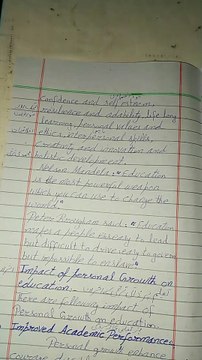 Confidence and self esteem,
resilience and adaptability, life long
learning, personal values and
ethics, interpersonal skills,
creativity and innovation and
holistic development.
Nelson Mandela: "Education
is the most powerful weapon
which you can use to change the
world"
Peter Brougham said: "Education
makes a people easy to lead
but difficult to drive, easy to govern
but impossible to enslave"
Impact of personal Growth on
education.
There are following impact of
Personal Growth on education
Improved Academic Performance:
Personal growth enhance